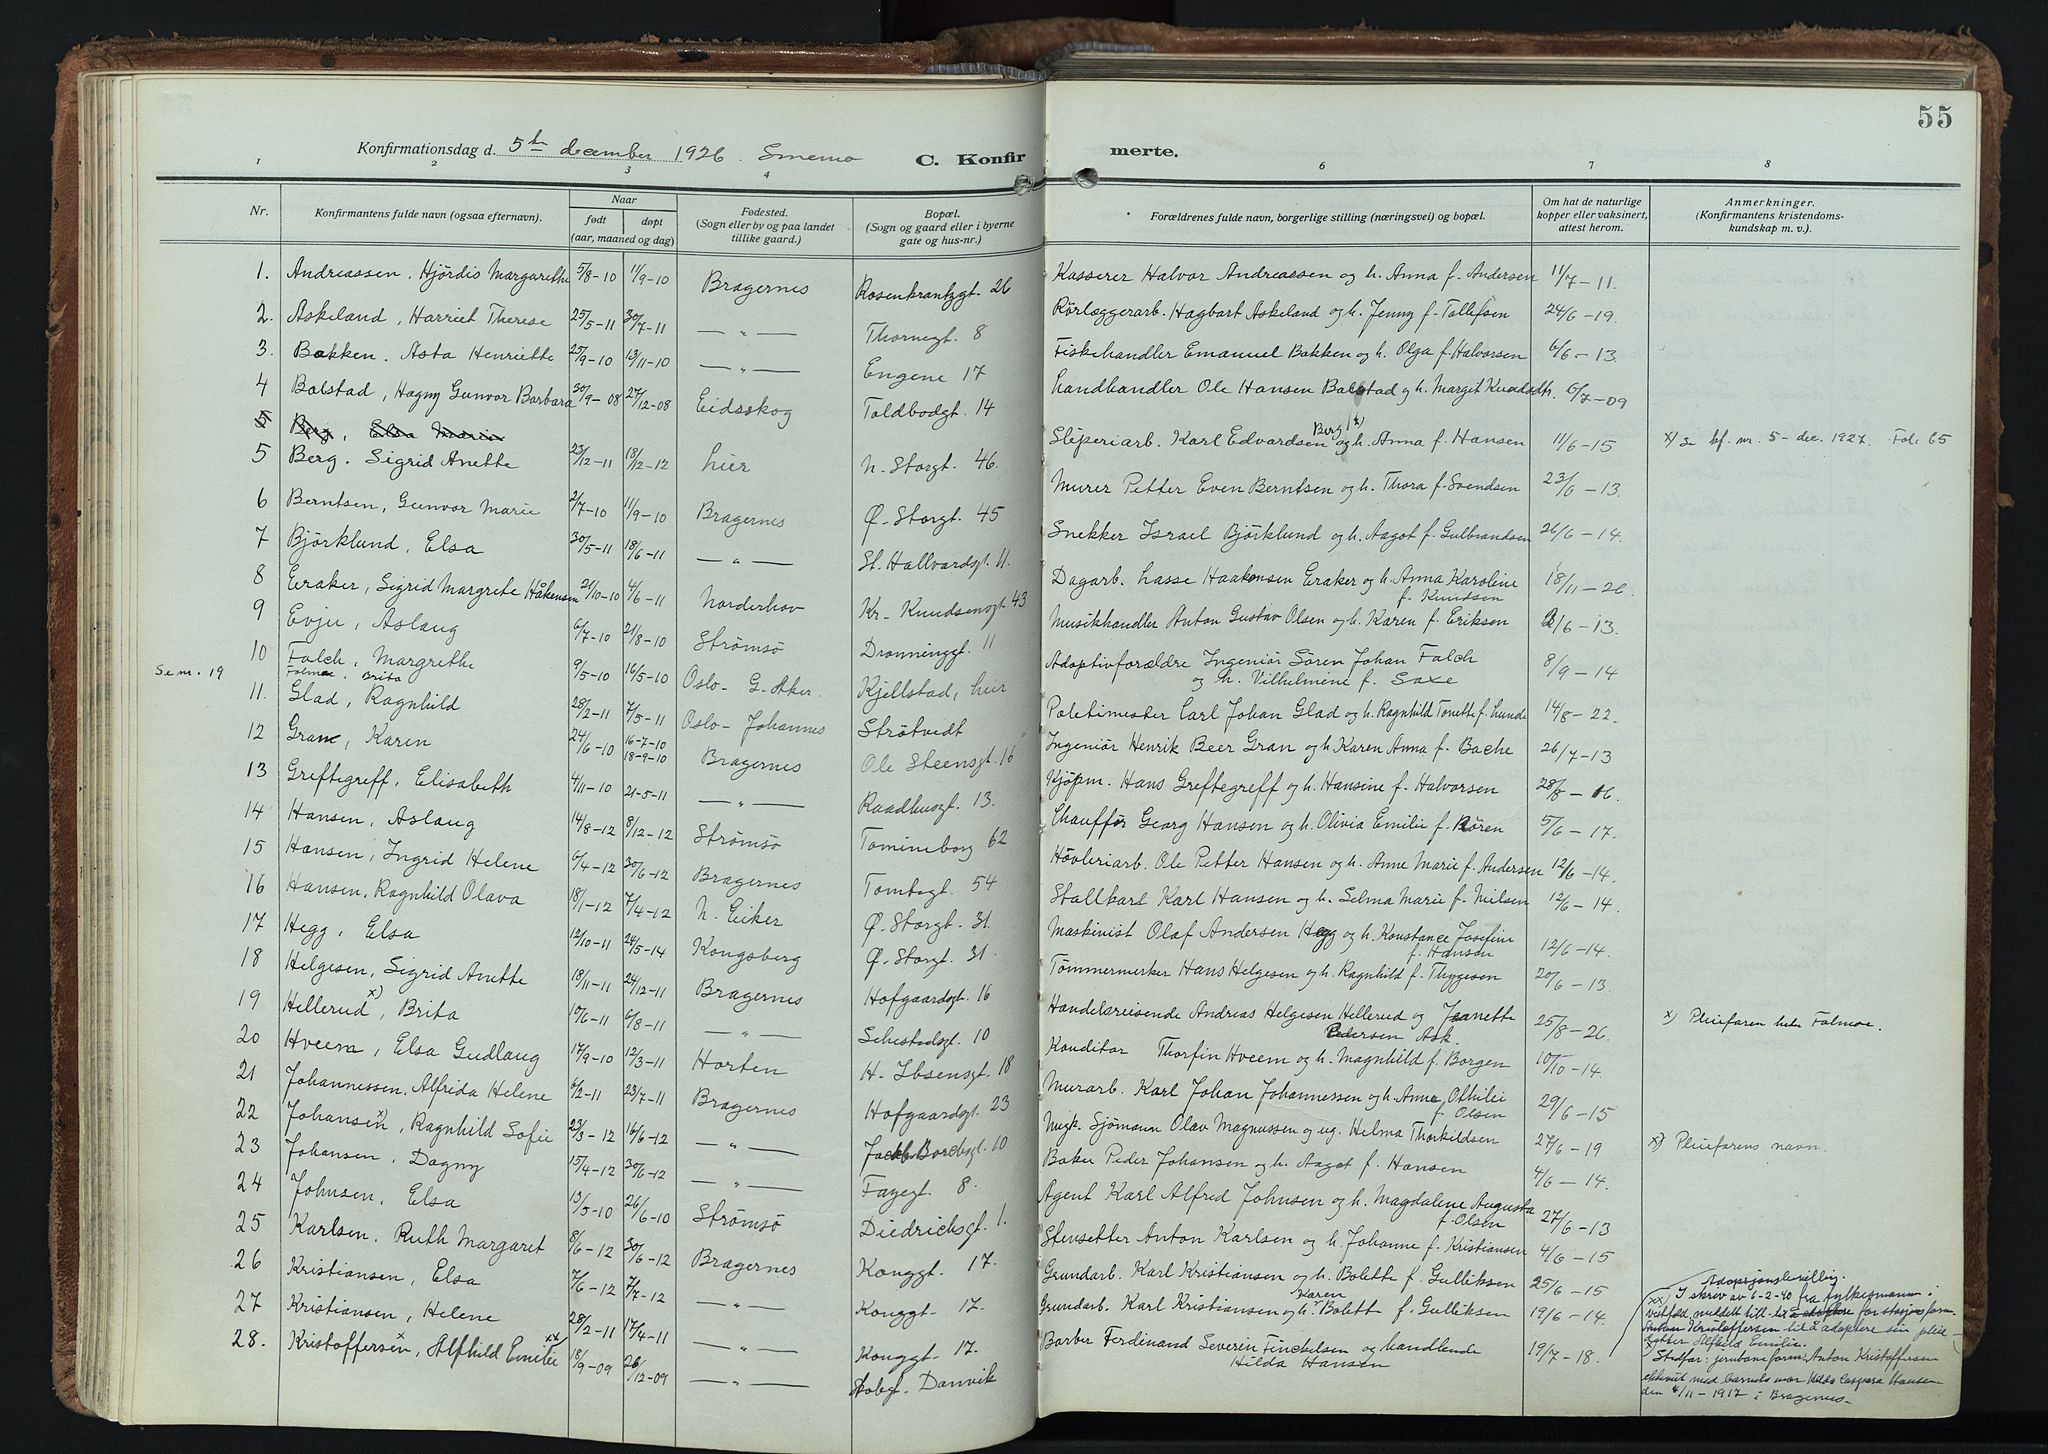 55
Konfirmationsdag d. 5te december 1926. C. Konfirmerte.
1 2 3 4 6 7 8
Nr. Konfirmantens fulde navn (ogsaa efternavn). Naar født døpt (aar, maaned og dag) Fødested. (Sogn eller by og paa landet tillike gaard.) Bopæl. (Sogn og gaard eller i byerne gate og hus-nr.) Forældrenes fulde navn, borgerlige stilling (næringsvei) og bopæl. Om hat de naturlige kopper eller vaksinert, attest herom. Anmerkninger. (Konfirmantens kristendomskundskap m. v.).
1. Andreassen, Hjördis Margarethe 5/8-10 11/9-10 Bragernes Rosenkrantzgt. 26 Kasserer Halvor Andreassen og h. Anna f. Andersen 11/7-11.
2. Askeland, Harriet Therese 25/5-11 30/7-11 —„— Thornegt. 8 Rörlæggerarb. Hagbart Askeland og h. Jenny f. Tollefsen 24/6-19.
3. Bakken. Asta Henriette 25/9-10 13/11-10 —„— Engene 17 Fiskehandler Emanuel Bakken og h. Olga f. Halvorsen 6/6-13.
4 Bolstad, Hagny Gunvor Barbara 30/9-08 27/12-08 Eidsskog Toldbodgt. 14 Landhandler Ole Hansen Bolstad og h. Margit Knudsdtr. 6/7-09
5 Berg, Elsa Marie
5 Berg. Sigrid Anette 23/12-11 18/12-12 hier N. Storgt. 46. Sliperiarb. Karl Edvardsen Berg x) og h. Anna f. Hansen 11/6-15 x) Se kf. nr. 5 - dec. 1927. Fol. 65
6 Berntsen, Gunvor Marie 2/7-10 11/9-10 Bragernes Ø. Storgt. 45 Murer Petter Even Berntsen og h. Thora f. Svendsen 23/6-13.
7 Björklund, Elsa 30/5-11 18/6-11 —„— St. Hallvardsgt. 11. Snekker Israel Björklund og h. Aagot f. Gulbrandsen 26/6-14.
8 Eraker, Sigrid Margrete Håkensen 21/10-10 4/6-11 Norderhov Kr. Knudsensgt. 43 Dagarb. Lasse Haakonsen Eraker og h. Anna Karoline f. Knudsen 18/11-26.
9 Evju, Aslaug 6/7-10 21/8-10 Strömsö Dronninggt. 11 Musikhandler Anton Gustav Olsen og h. Karen f. Eriksen /6-13.
10 Falch, Margrethe 9/5-10 16/5-10 Oslo - G. Aker. Kjellstad, hier Adoptivforældre Ingeniör Sören Johan Falch og h. Vilhelmine f. Saxe 8/9-14
Se nr. 19 Falmoe, Brita
11. Glad, Ragnhild 28/2-11 7/5-11 Oslo - Johannes Strötvedt Politimester Carl Johan Glad og h. Ragnhild Tonette f. Lunde 14/8-22.
12 Gran, Karen 24/6-10 16-7-10 18-9-10 Bragernes Ole Steensgt. 16 Ingeniör Henrik Beer Gran og h. Karen Anna f. Bache 26/7-13
13 Greftegreff, Elisabeth 4/11-10 21-5-11 —„— Raadhusgt. 13. Kjöpm. Hans Greftegreff og h. Hansine f. Halvorsen 28/8-16.
14 Hansen, Aslaug 14/8-12 8/12-12 Strömsö Tomineborg 62 Chaufför Georg Hansen og h. Olivia Emilie f. Bören 5/6-17.
15 Hansen, Ingrid Helene 6/4-12 30/6-12 Bragernes Tomtegt. 54 Hövleriarb. Ole Petter Hansen og h. Anne Marie f. Andersen 12/6-14.
16 Hansen, Ragnhild Olava 18/1-12 7/4-12 N. Eiker Ø. Storgt. 31. Stallkarl Karl Hansen og h. Selma Marie f. Nielsen 12/6-14.
17 Hegg, Elsa 12/10-11 24/5-14 Kongsberg Ø. Storgt. 31. Maskinist Olaf Andersen Hegg og h. Konstance Josefine f. Hanson 12/6-14.
18 Helgesen, Sigrid Anette 18/11-11 24/12-11 Bragernes Hofgaardsgt. 16 Tömmermerker Hans Helgesen og h. Ragnhild f. Thygesen 20/6-13.
19 Hellerud x), Brita 10/6-11 6/8-11 —„— Schestedsgt. 10 Handelsreisende Andreas Helgesen Hellerud og Jeanette Pedersen Ask. 25/8-26. x) Pleiefaren hete Falmoe.
20 Hveem, Elsa Gudlaug 17/9-10 12/3-11 Horten H. Ibsensgt. 18 Konditor Thorfin Hveem og h. Magnhild f. Borgen 10/10-14.
21 Johannessen, Alfrida Helene 6/2-11 23/7-11 Bragernes Hofgaardsgt. 23 Murarb. Karl Johan Johannessen og h. Anna Othilie f. Olsen 29/6-15
22 Johansen x), Ragnhild Sofie 23/3-12 16/6-12 —„— Jacob Borchsgt. 10 Ungk. Sjömann Olav Magnussen og ug. Helma Thorkildsen 27/6-19 x) Pleiefarens navn.
23 Johansen, Dagny 15/4-12 30/6-12 —„— Fayegt. 8. Baker Peder Johansen og h. Aagot f. Hansen 4/6-14.
24 Johnsen, Elsa 13/5-10 26/6-10 Strömsö Diedrichsgt. 1. Agent Karl Alfred Johnsen og h. Magdalene Augusta f. Olsen 27/6-13
25 Karlsen, Ruth Margaret 8/6-12 30/6-12 Bragernes Konggt. 17. Stensetter Anton Karlsen og h. Johanne f. Kristiansen 4/6-15
26 Kristiansen, Elsa 7/6-12 7/7-12 —„— Konggt. 17. Grundarb. Karl Kristiansen og h. Bolette f. Gulliksen 25/6-15
27 Kristiansen, Helene 28/2-11 17/4-11 —„— Konggt. 17. Grundarb. Karl Kristiansen og h. Karen Bolette f. Gulliksen 19/6-14.
28. Kristoffersen x, Alfhild Emilie xx) 18/9-09 26/12-09 —„— Danvik Barber Ferdinand Severin Finckelsen og handlende Hilda Hansen 19/7-18.
Adopsjonsbevilling.
xx) I skriv av 6-2-40 fra fylkesmann i
Vestfold, meddelt till. til å adoptere for stasjonsform.
Anton Kristoffersen til å adoptere sin pleie-
datter Alfhild Emilie.
x) Stedfar: jernbaneform. Anton Kristoffersen
ektevict med barnets mor Hilda Caspara Hansen
den 4/11-1917 i Bragernes.